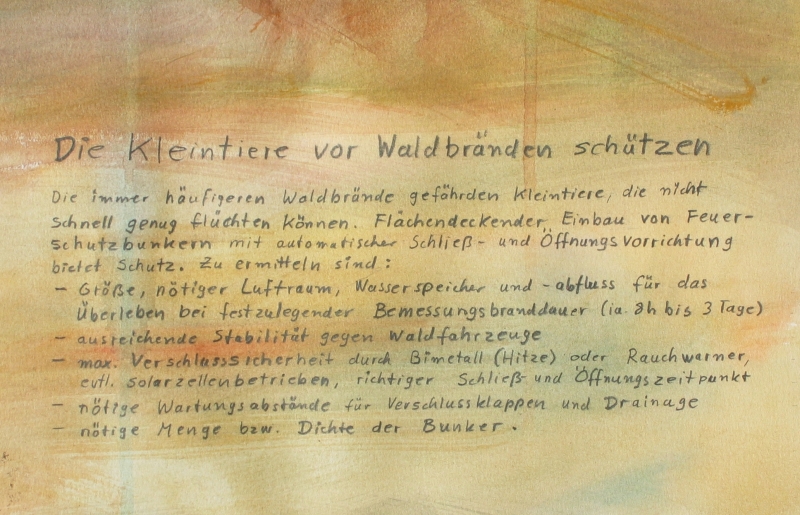 Die Kleintiere vor Waldbränden schützen
Die immer häufigeren Waldbrände gefährden Kleintiere, die nicht
schnell genug flüchten können. Flächendeckender Einbau von Feuer-
schutzbunkern mit automatischer Schließ- und Öffnungsvorrichtung
bietet Schutz. Zu ermitteln sind:
- Größe, nötiger Luftraum, Wasserspeicher und -abfluss für das
Überleben bei festzulegender Bemessungsbranddauer (ia. 8h bis 3 Tage)
- ausreichende Stabilität gegen Waldfahrzeuge
- max. Verschlusssicherheit durch Bimetall (Hitze) oder Rauchwarner,
evtl. solarzellenbetrieben, richtiger Schließ- und Öffnungszeitpunkt
- nötige Wartungsabstände für Verschlussklappen und Drainage
- nötige Menge bzw. Dichte der Bunker.